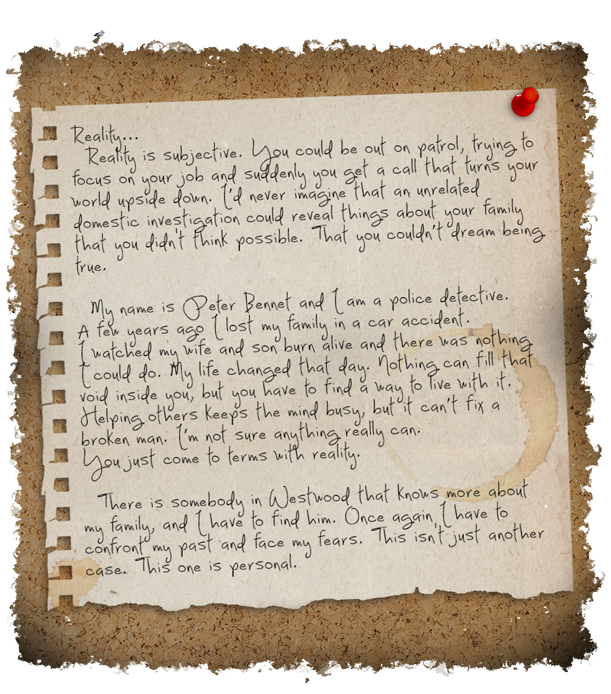 Reality...
Reality is subjective. You could be out on patrol, trying to
focus on your job and suddenly you get a call that turns your
world upside down. I'd never imagine that an unrelated
domestic investigation could reveal things about your family
that you didn't think possible. That you couldn't dream being
true.
My name is Peter Bennet and I am a police detective.
A few years ago I lost my family in a car accident.
I watched my wife and son burn alive and there was nothing
I could do. My life changed that day. Nothing can fill that
void inside you, but you have to find a way to live with it.
Helping others keeps the mind busy, but it can't fix a
broken man. I'm not sure anything really can.
You just come to terms with reality.
There is somebody in Westwood that knows more about
my family, and I have to find him. Once again I have to
confront my past and face my fears. This isn't just another
case. This one is personal.